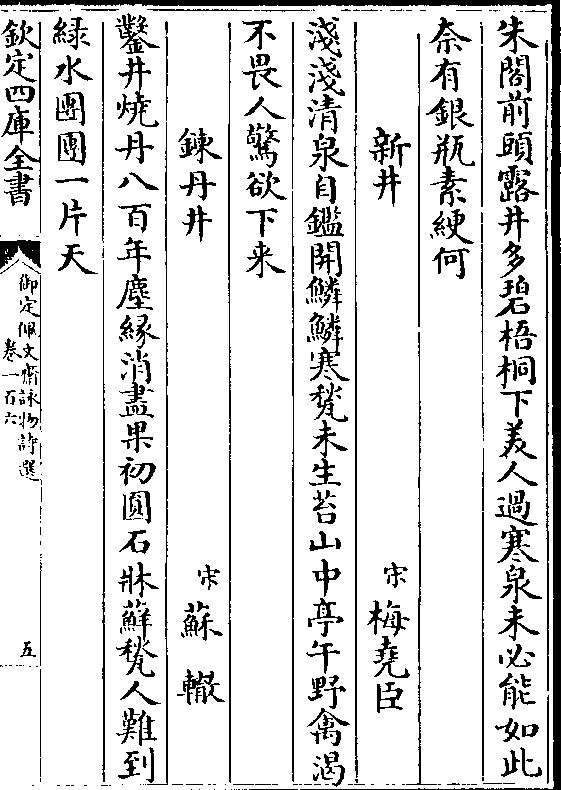 朱閣前頭露井多碧梧桐下美人過寒泉未必能如此
奈有銀瓶素綆何
新井
宋 梅堯臣
淺淺清泉自鑑開鱗鱗寒甃未生苔山中亭午野禽渴
不畏人驚欲下来
鍊丹井
宋 蘇轍
鑿井燒丹八百年塵緣消盡果初圓石牀蘚甃人難到
緑水團團一片天
欽定四庫全書
御定佩文齋詠物詩選
卷一百六
五